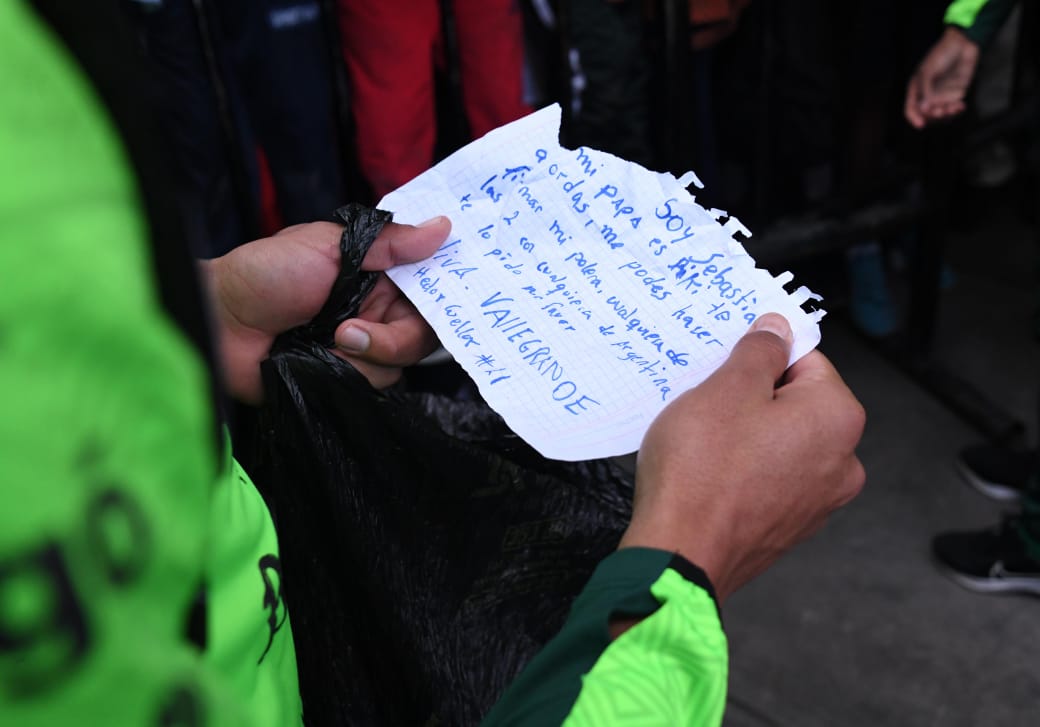 SOY Sebastian
mi PAPA es te
a ordas, me podes hacer
fimar mi polera cualquiera de
las 2 con cualquiera de Argentina
te lo pido por favor
VIVA - VALLEGRANDE
Hector